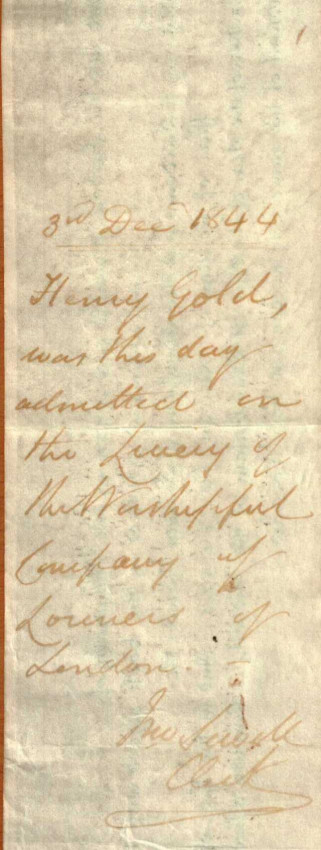 3rd Decr 1844
Henry Gold,
was this day
admitted on
the Livery of
the Worshipful
Company of
Loriners of
London. —
Jno Sewell
Clerk